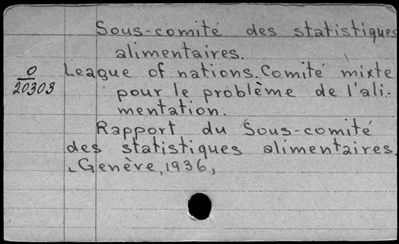 Sous-comité des statistiques
alimentaires.
O
20303
League of nations. Comité mixte
pour le problème de l'ali-
mentation.
Rapport du Sous-comité
des statistiques alimentaires.
Genève, 1936,